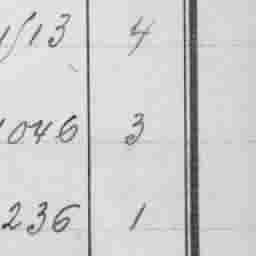 13 4
1046 3
236 1